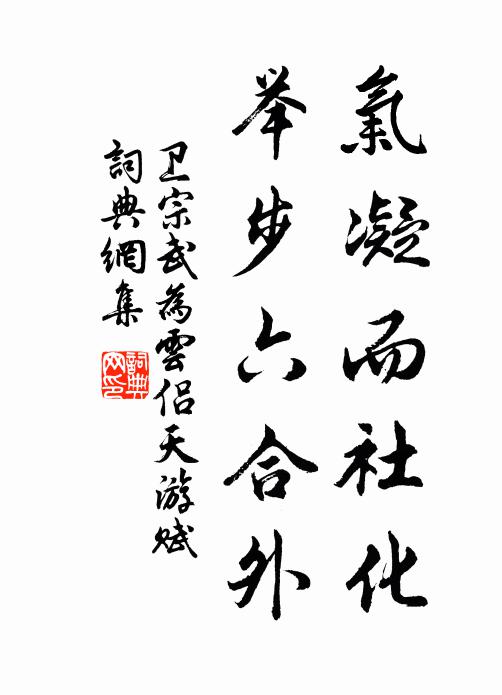 氣凝而社化
举步六合外
卫宗武為雲侶天游赋
詞典網集
詞典网印